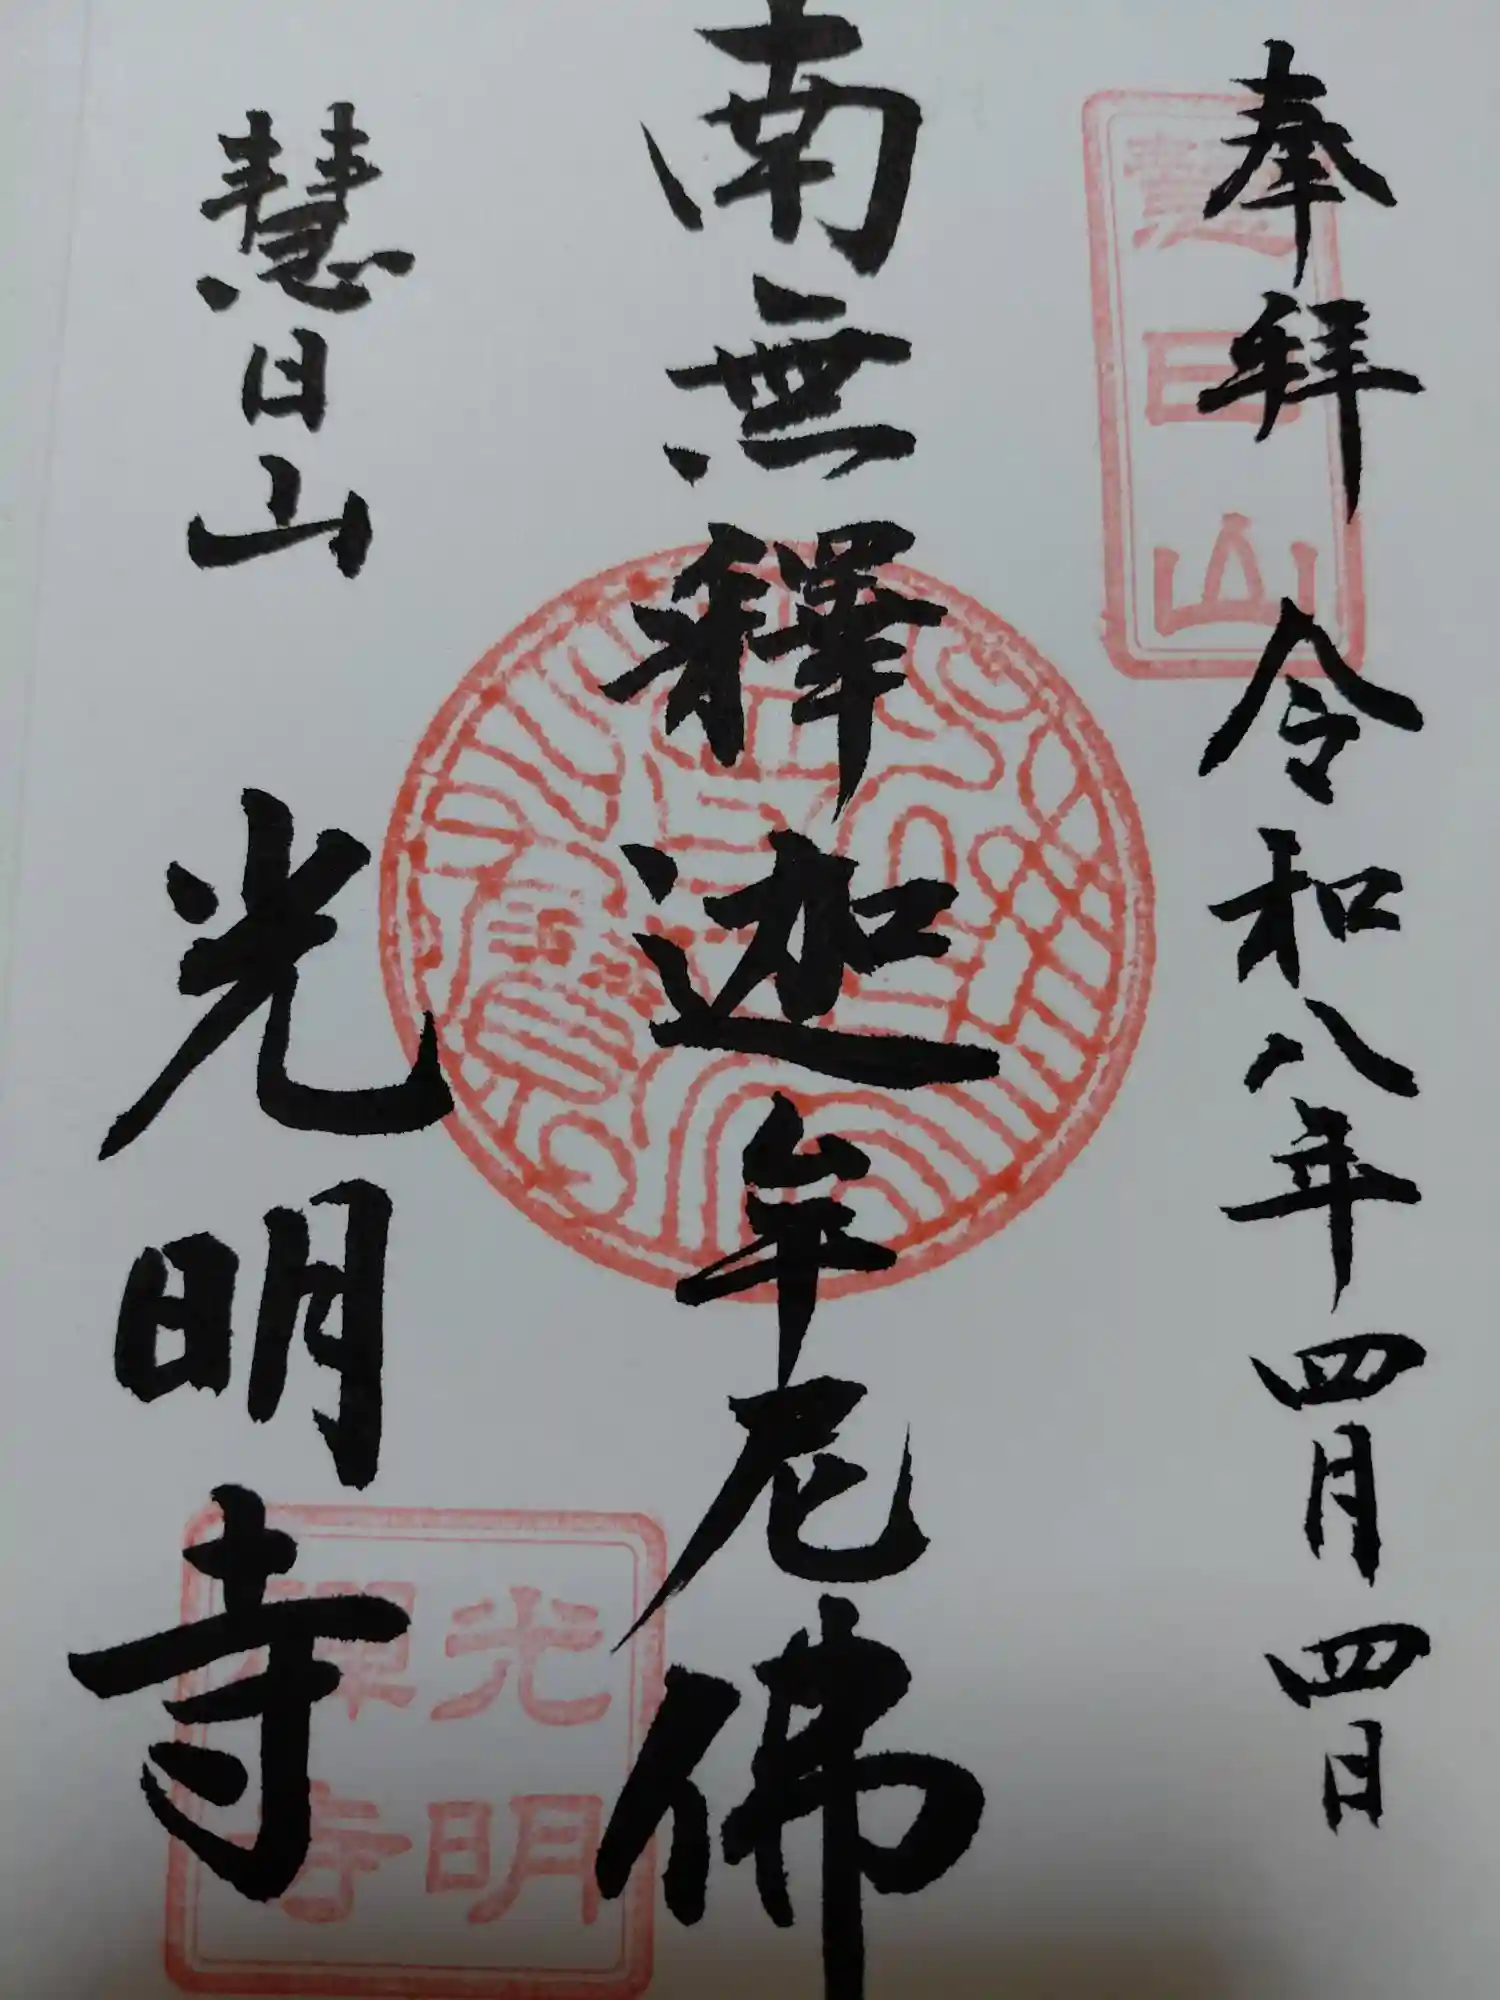 奉拜 令和八年四月四日
慧日山
南無釋迦牟尼佛
慧日山 光明寺
光明
禅寺